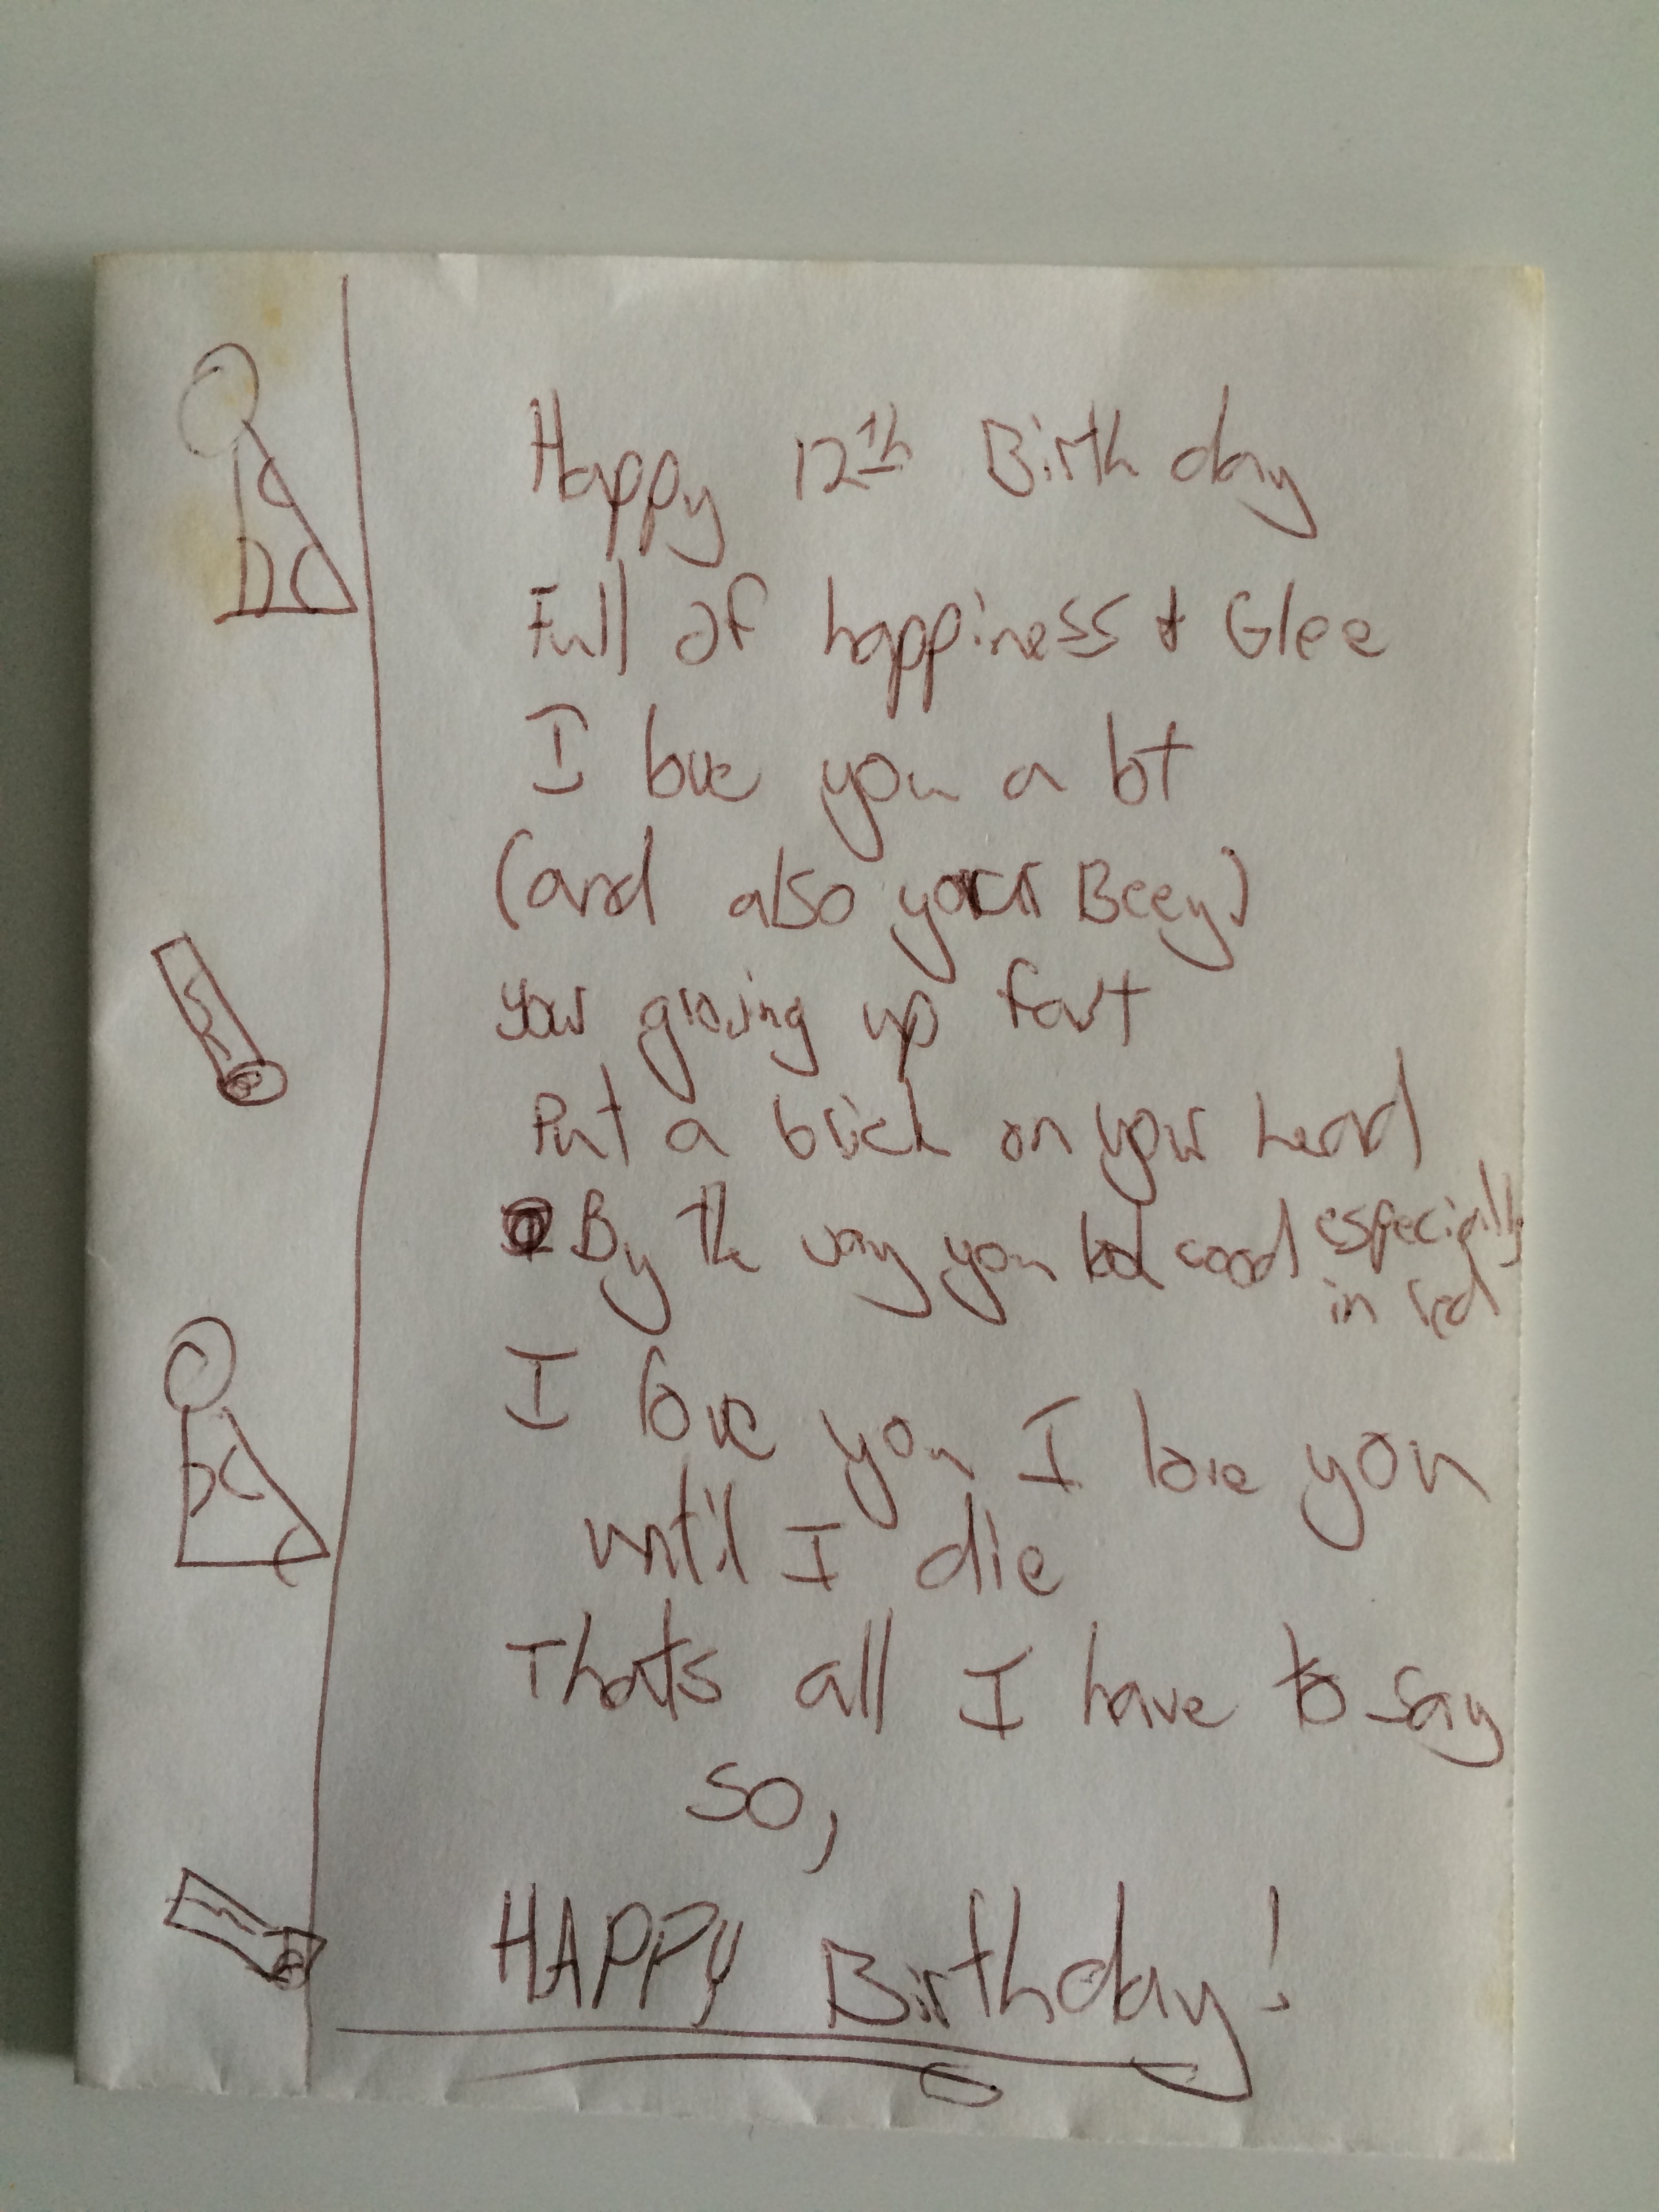 Happy 12th Birthday
Full of happiness & Glee
I love you a lot
(and also your Beey)
your growing up fast
Put a brick on your head
By the way you look good especially
in red
I love you I love you
until I die
Thats all I have to say
so,
HAPPY Birthday!